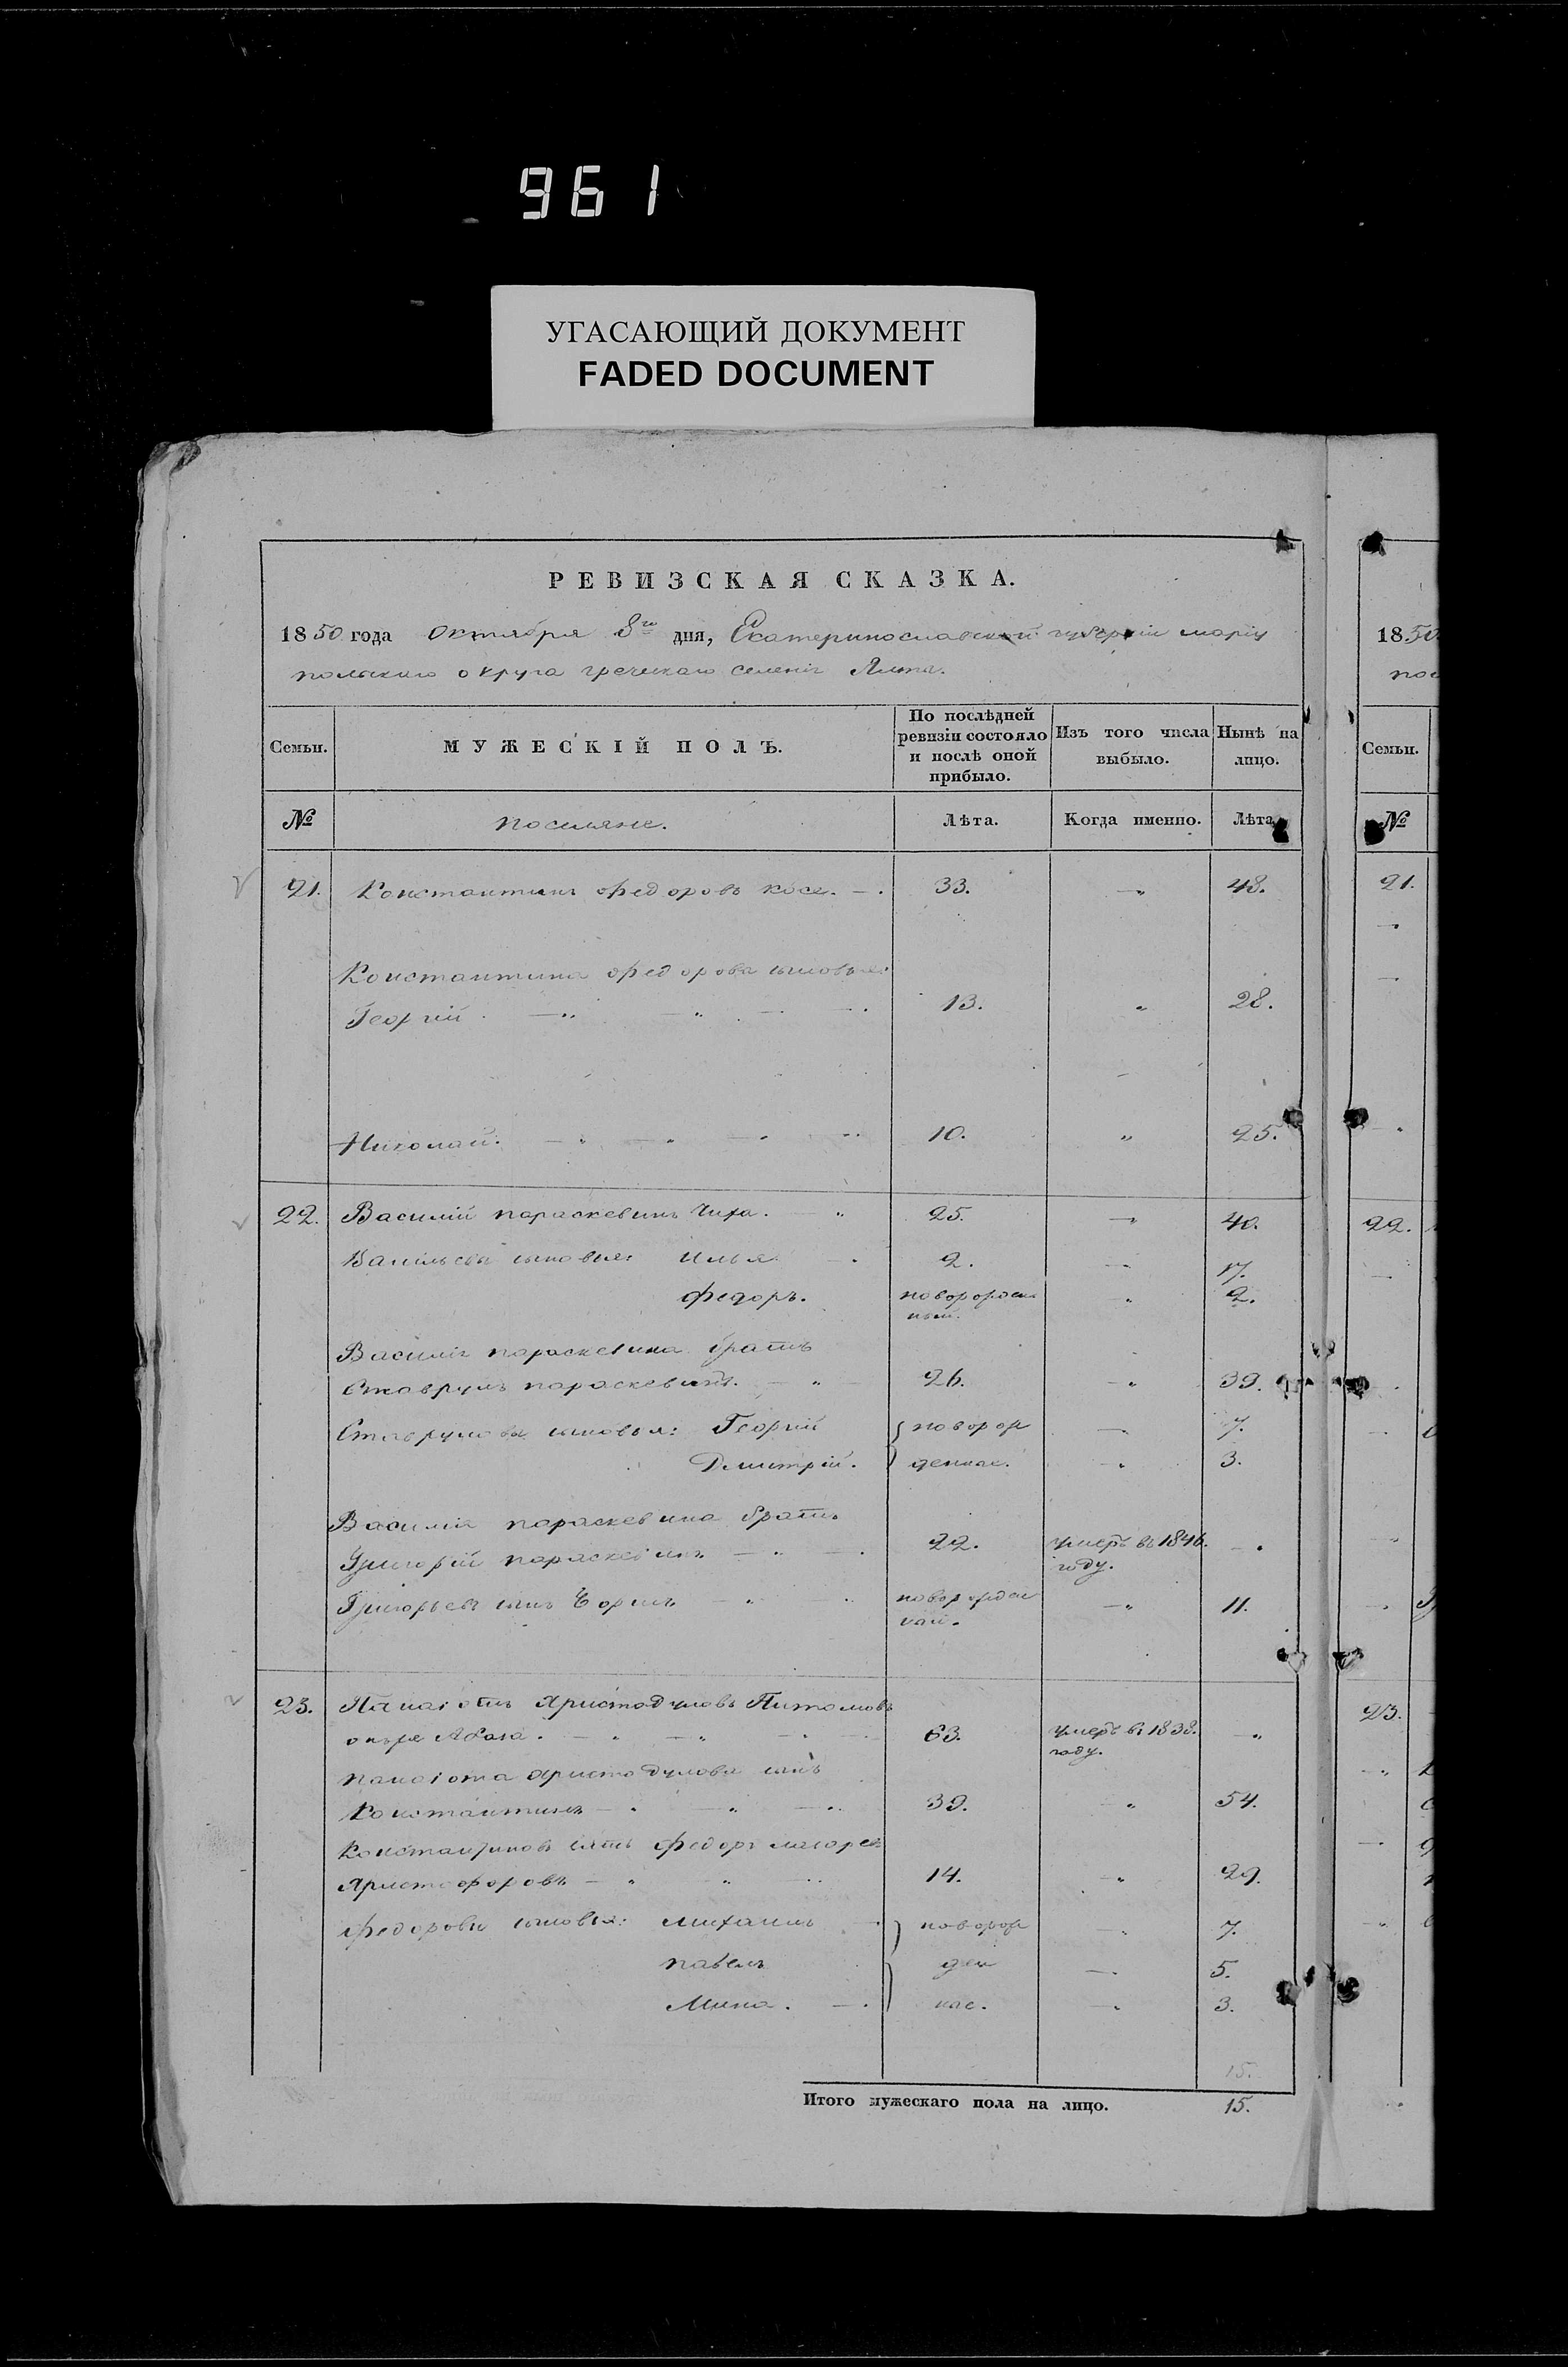 961
УГАСАЮЩИЙ ДОКУМЕНТ
FADED DOCUMENT
РЕВИЗСКАЯ СКАЗКА.
1850 года Октября 8го дня, Екатеринославской губерніи маріу
польскаго округа греческаго селенія Ялта.
Семьи. МУЖЕСКІЙ ПОЛЪ. По послѣдней ревизіи состояло и послѣ оной прибыло. Изъ того числа выбыло. Нынѣ на лицо.
№ поселяне. Лѣта. Когда именно. Лѣта
21. Константинъ федоровъ косе. 33. 48.
Константина федорова сыновья:
Георгій 13. 28.
Николай. 10. 25.
22. Василій параскевинъ Чиха. 25. 40.
Васильевы сыновья: Илья 2. 17.
федоръ. новорожден ный. 2.
Василія параскевина братъ
Ставрулъ параскевинъ. 26. 39.
Ставруловы сыновья: Георгій новорож 7.
Дмитрій. денные. 3.
Василія параскевина братъ
Григорій параскевинъ 22. умеръ въ 1846. году.
Григорьевъ сынъ новорожден ный. 11.
23. Панаіотъ Аристодуловъ
онъ же 63. умеръ въ 1838. году.
панаіота Аристодулова сынъ
Константинъ 39. 54.
Константиновъ зять федоръ
14. 29.
федоровы сыновья: Михаилъ новорож 7.
павелъ ден 5.
Мина. ные. 3.
15.
Итого мужескаго пола на лицо. 15.
1850
пол
Семьи.
№
21.
22.
23.